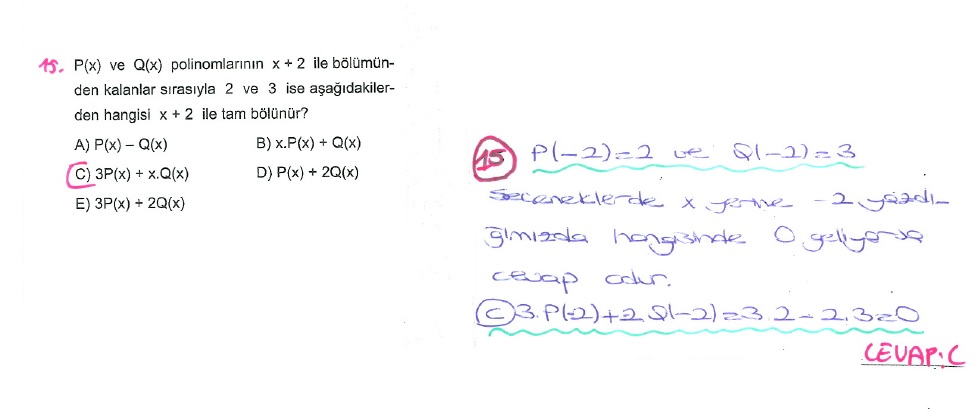 15. P(x) ve Q(x) polinomlarının x + 2 ile bölümün-
den kalanlar sırasıyla 2 ve 3 ise aşağıdakiler-
den hangisi x + 2 ile tam bölünür?
A) P(x) – Q(x) B) x.P(x) + Q(x)
C) 3P(x) + x.Q(x) D) P(x) + 2Q(x)
E) 3P(x) + 2Q(x)
15 P(-2)=2 ve Q(-2)=3
Seçeneklerde x yerine -2 yazdı-
ğımızda hangisinde 0 geliyorsa
cevap odur.
C 3.P(-2)+2.Q(-2)=3.2-2.3=0
CEVAP:C